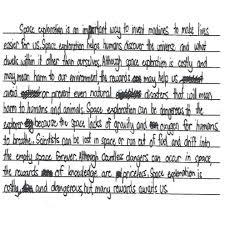 Space exploration is an important way to invent machines to make lives
easier for us. Space exploration helps humans discover the universe and what
dwells within it other than ourselves. Although space exploration is costly and
may mean harm to our environment the rewards may help us
avoid or prevent even natural disasters that will mean
harm to humans and animals. Space exploration can be dangerous to the
explorer because the space lacks of gravity, and oxygen for humans
to breathe. Scientists can be lost in space, or run out of fuel and drift into
the empty space forever. Although countless dangers can occur in space,
the rewards of knowledge are priceless. Space exploration is
costly, and dangerous, but many rewards awaits us.